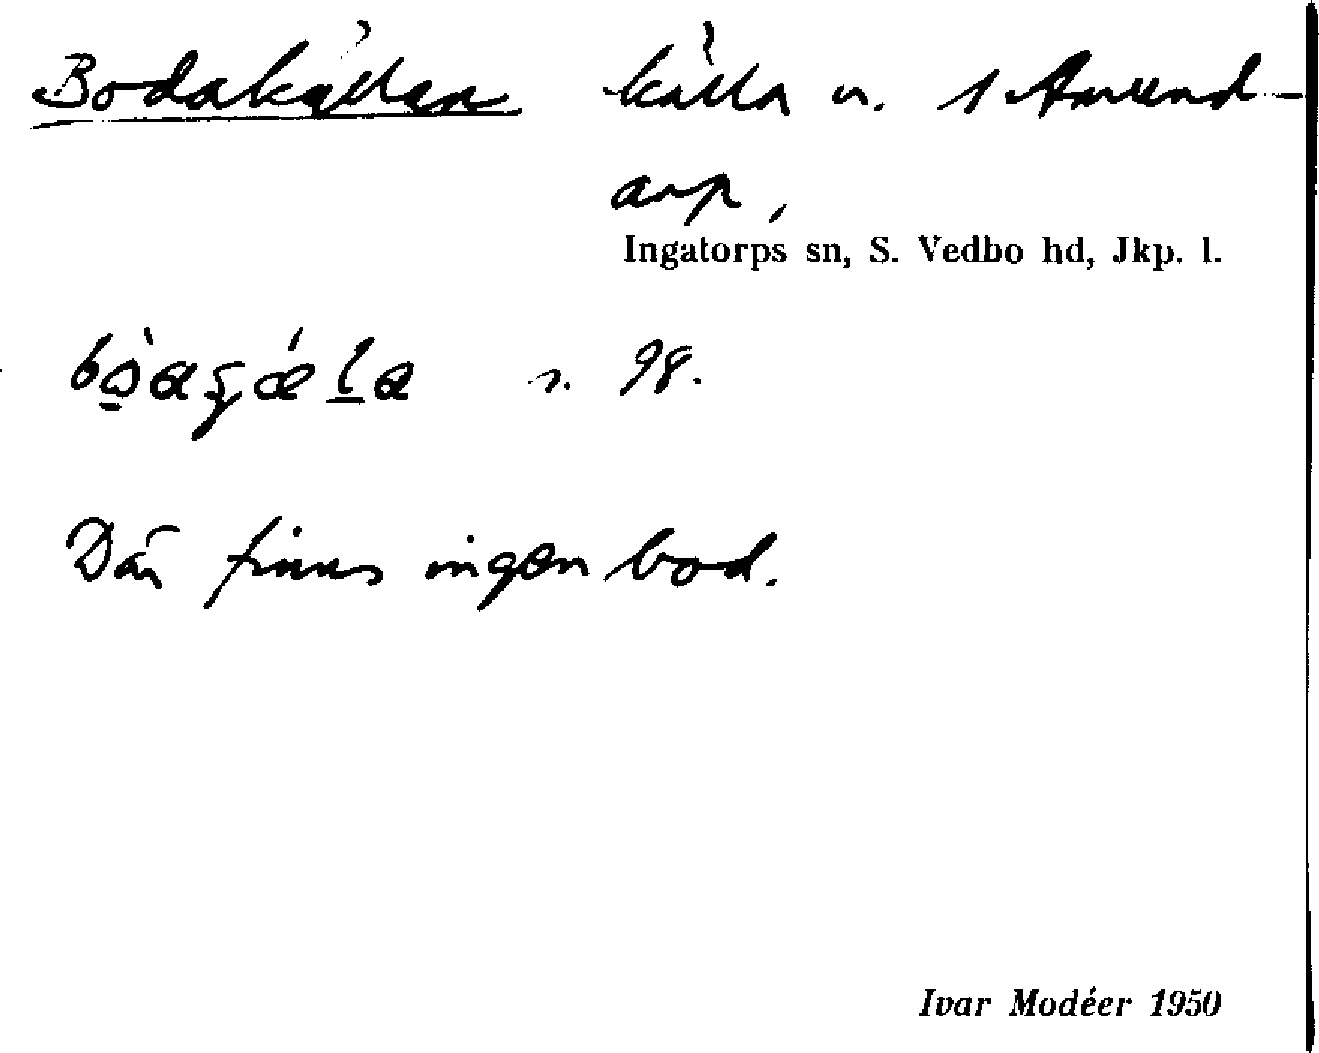 Bodakällan källa n. 1 Amund-
arp,
Ingatorps sn, S. Vedbo hd, Jkp. l.
s. 98.
Där finns ingen bod.
Ivar Modéer 1950